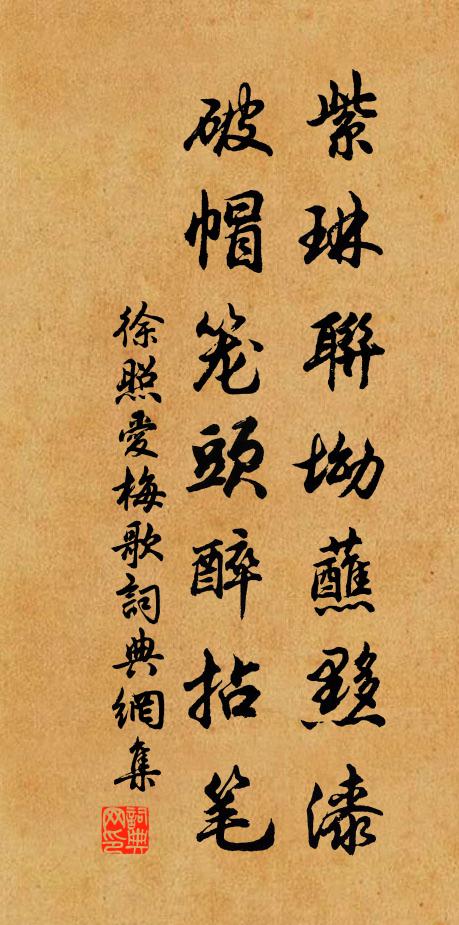 紫琳聯坳蘸黟漆
破帽笼頭醉拈笔
徐照愛梅歌詞典網集
詞典网印